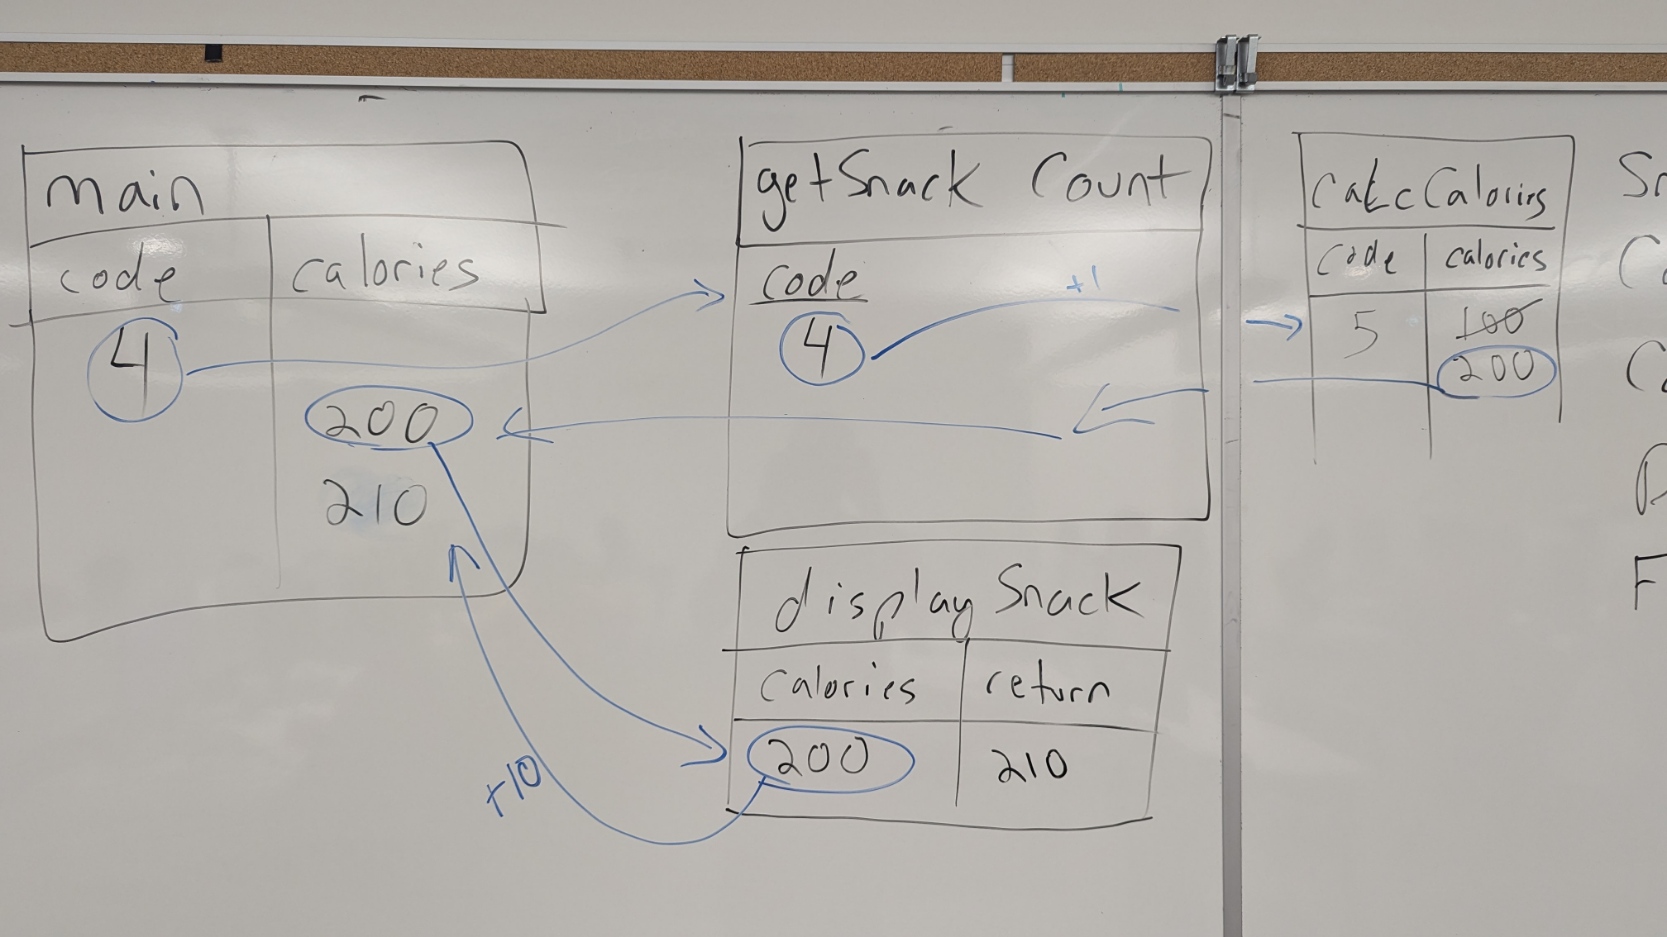 main
code calories
4
200
210
getSnack Count
code
+1
4
CalcCalories
code calories
5 100
200
displaySnack
calories return
200 210
+10
Sn
C
C
F